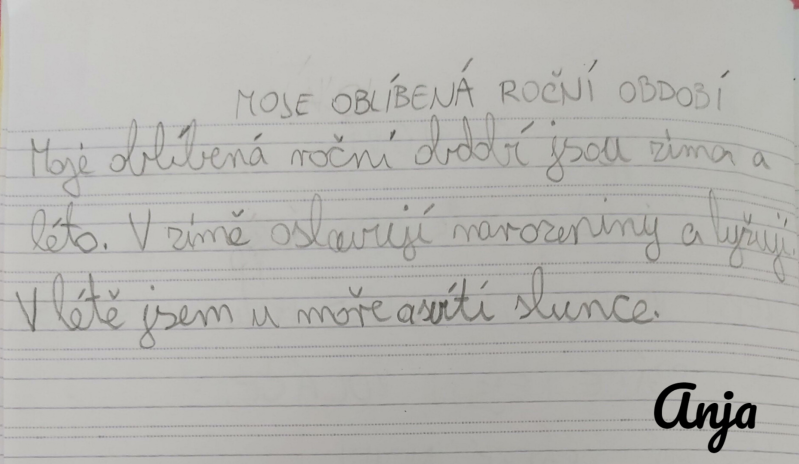 MOJE OBLÍBENÁ ROČNÍ OBDOBÍ
Moje oblíbená roční období jsou zima a
léto. V zimě oslavují narozeniny a lyžuji.
V létě jsem u moře a svítí slunce.
Anja